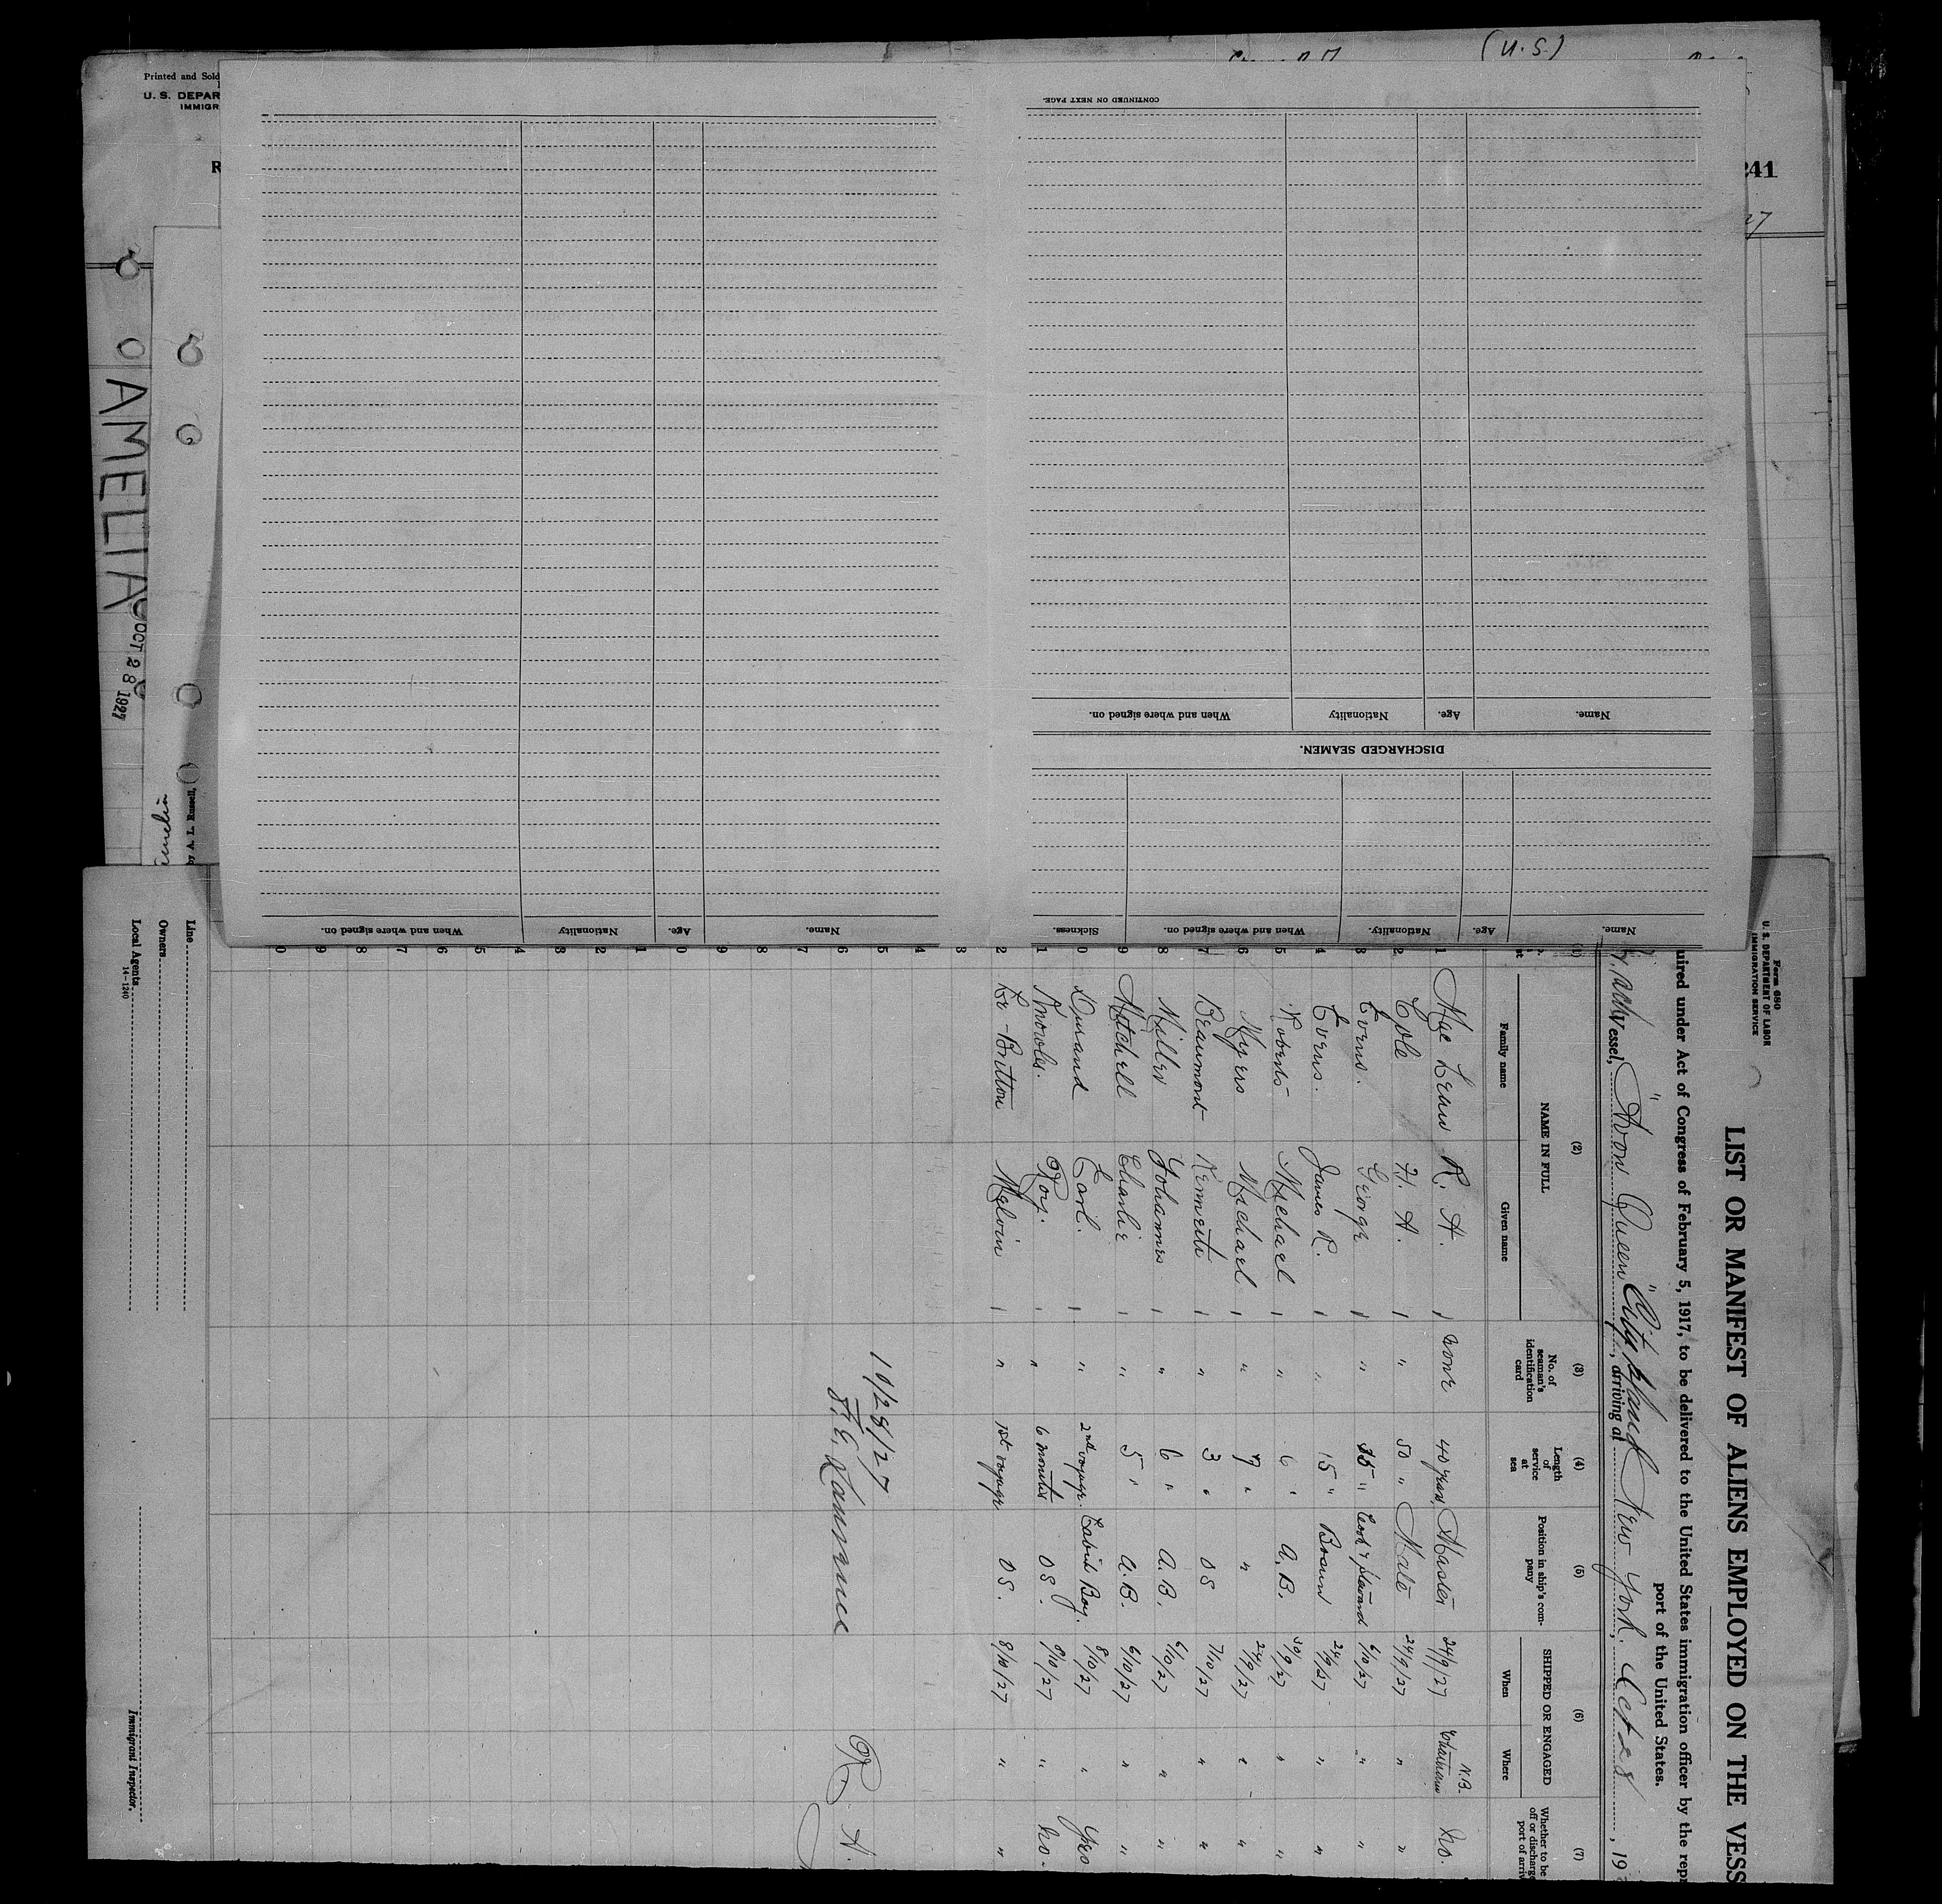 Printed and Sold
U. S. DEPAR
IMMIGR
R
(U.S)
241
27
AMELIA
OCT 28 1927
by A. L. Russell,
CONTINUED ON NEXT PAGE.
Name.
Age.
Nationality
When and where signed on.
DISCHARGED SEAMEN.
Name.
Age.
Nationality.
When and where signed on.
Sickness.
Name.
Age.
Nationality
When and where signed on.
Form 680
U. S. DEPARTMENT OF LABOR
IMMIGRATION SERVICE
LIST OR MANIFEST OF ALIENS EMPLOYED ON THE VESS
uired under Act of Congress of February 5, 1917, to be delivered to the United States immigration officer by the repr
port of the United States.
Vessel, "Avon Queen" City Island, arriving at New York. Oct 28, 19
(2) (3) (4) (5) (6) (7)
NAME IN FULL
Family name Given name
No. of seaman's identification card
Length of service at sea
Position in ship's company
SHIPPED OR ENGAGED
When Where
Whether to be
off or discharge
port of arriv
1 Mac Lean R. A. 1 none 40 years Master 24/9/27 Chatham N.B. no.
2 Cole H. A. 1 " 50 " Mate 24/9/27 " "
3 Evens. George 1 " 35 " Cook & Steward 6/10/27 " "
4 Evens. James R. 1 " 15 " Bosun 24/9/27 " "
5 Roberts Michael 1 " 6 " A.B. 30/9/27 " "
6 Myers Michael 1 " 7 " " 24/9/27 " "
7 Beaumont Kenneth 1 " 3 " OS 7/10/27 " "
8 Miller Johannes 1 " 6 " A.B. 6/10/27 " "
9 Mitchell Charlie 1 " 5 " A.B. 6/10/27 " "
0 Durand Earl. 1 " 2nd voyage. Cabin Boy. 8/10/27 " yes
1 Knowles. Roy. 1 " 6 months OS. 8/10/27 " no.
2 Le-Britton Melvin 1 " 1st voyage OS. 8/10/27 " "
3
4
5
10/28/27
6
R. A.
7
8
9
0
1
2
3
4
5
6
7
8
9
0
Line
Owners
Local Agents
14-1240
Immigrant Inspector.